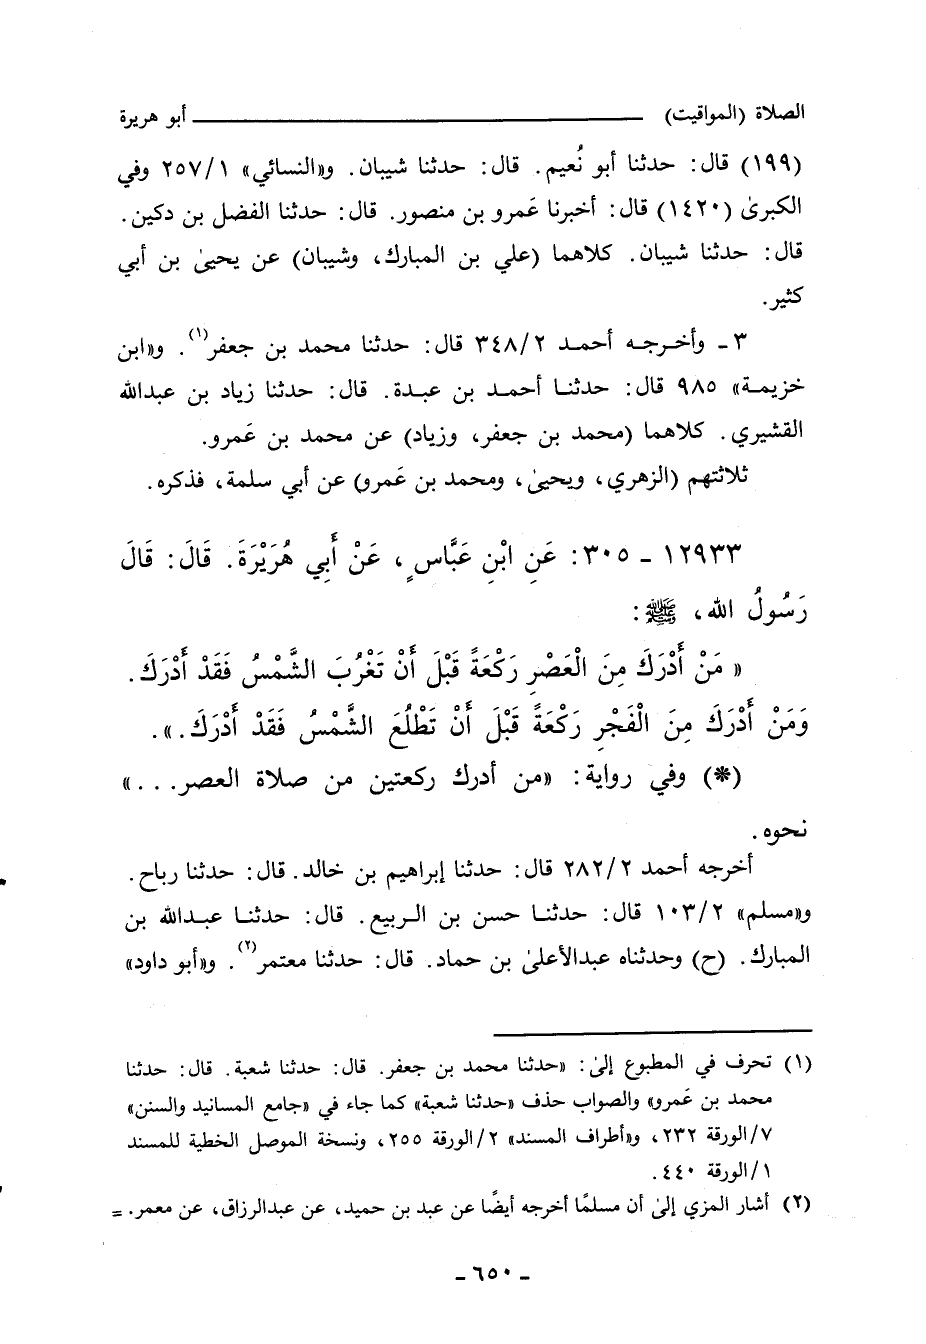 الصلاة (المواقيت) أبو هريرة
(١٩٩) قال: حدثنا أبو نُعيم. قال: حدثنا شيبان. و«النسائي» ٢٥٧/١ وفي
الكبرىٰ (١٤٢٠) قال: أخبرنا عَمرو بن منصور. قال: حدثنا الفضل بن دكين.
قال: حدثنا شيبان. كلاهما (علي بن المبارك، وشيبان) عن يحيىٰ بن أبي
كثير.
٣ ـ وأخرجه أحمد ٣٤٨/٢ قال: حدثنا محمد بن جعفر(١). و«ابن
خزيمة» ٩٨٥ قال: حدثنا أحمد بن عبدة. قال: حدثنا زياد بن عبدالله
القشيري. كلاهما (محمد بن جعفر، وزياد) عن محمد بن عَمرو.
ثلاثتهم (الزهري، ويحيىٰ، ومحمد بن عَمرو) عن أبي سلمة، فذكره.
١٢٩٣٣ ـ ٣٠٥: عَنِ ابْنِ عَبَّاسٍ، عَنْ أَبِي هُرَيْرَةَ. قَالَ: قَالَ
رَسُولُ اللهِ، ﷺ:
« مَنْ أَدْرَكَ مِنَ الْعَصْرِ رَكْعَةً قَبْلَ أَنْ تَغْرُبَ الشَّمْسُ فَقَدْ أَدْرَكَ.
وَمَنْ أَدْرَكَ مِنَ الْفَجْرِ رَكْعَةً قَبْلَ أَنْ تَطْلُعَ الشَّمْسُ فَقَدْ أَدْرَكَ.».
(*) وفي رواية: «من أدرك ركعتين من صلاة العصر...»
نحوه.
أخرجه أحمد ٢٨٢/٢ قال: حدثنا إبراهيم بن خالد. قال: حدثنا رباح.
و«مسلم» ١٠٣/٢ قال: حدثنا حسن بن الربيع. قال: حدثنا عبدالله بن
المبارك. (ح) وحدثناه عبدالأعلىٰ بن حماد. قال: حدثنا معتمر(٢). و«أبو داود»
(١) تحرف في المطبوع إلىٰ: «حدثنا محمد بن جعفر. قال: حدثنا شعبة. قال: حدثنا
محمد بن عَمرو» والصواب حذف «حدثنا شعبة» كما جاء في «جامع المسانيد والسنن»
٧/الورقة ٢٣٢، و«أطراف المسند» ٢/الورقة ٢٥٥، ونسخة الموصل الخطية للمسند
١/الورقة ٤٤٠.
(٢) أشار المزي إلىٰ أن مسلمًا أخرجه أيضًا عن عبد بن حميد، عن عبدالرزاق، عن معمر. =
ـ ٦٥٠ ـ